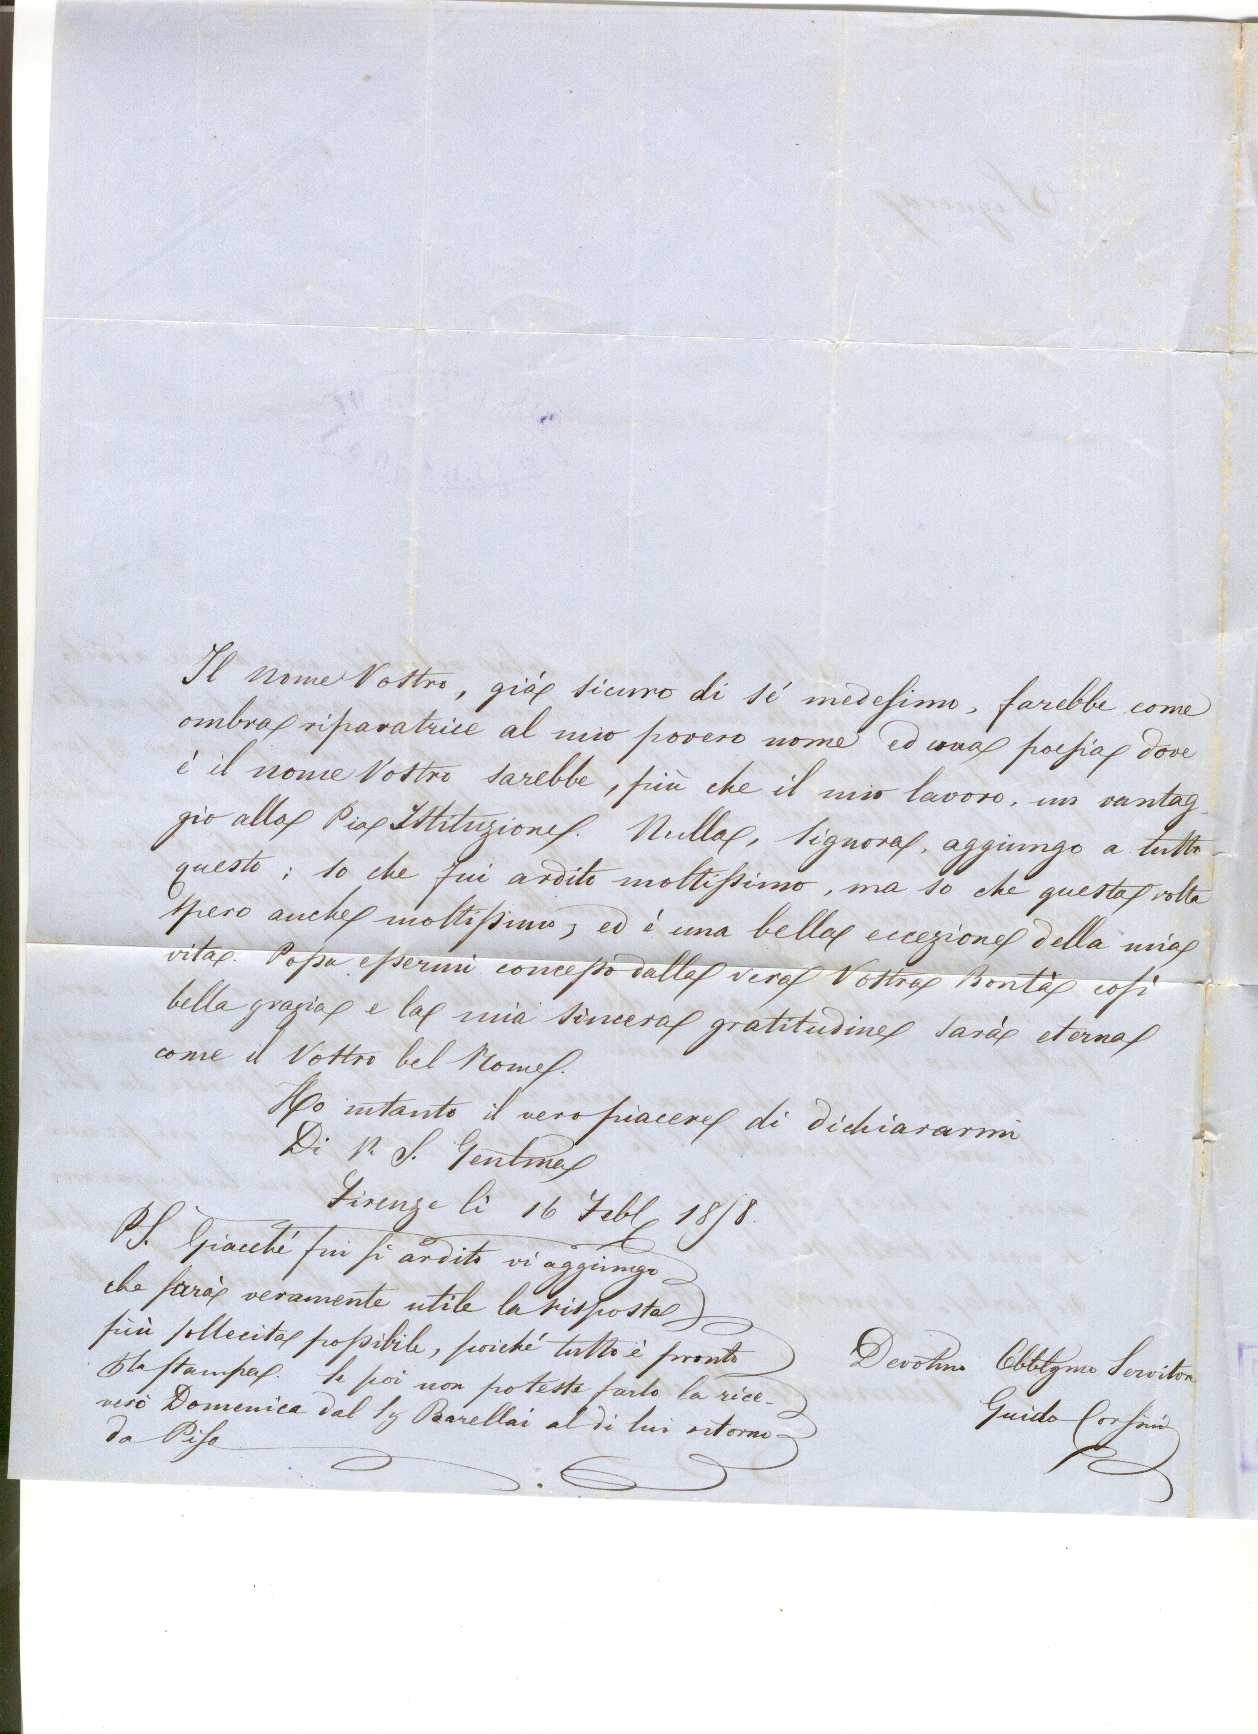 Il nome Vostro, già sicuro di sé medesimo, farebbe come
ombra riparatrice al mio povero nome ed una poesia dove
è il nome Vostro sarebbe, più che il mio lavoro, un vantag-
gio alla Pia Istituzione. Nulla, Signora, aggiungo a tutto
questo; so che fui ardito moltissimo, ma so che questa volta
spero anche moltissimo, ed è una bella eccezione della mia
vita. Possa essermi concesso dalla vera Vostra Bontà così
bella grazia e la mia sincera gratitudine sarà eterna
come il Vostro bel Nome.
Ho intanto il vero piacere di dichiararmi
Di V. S. Gentma
Firenze li 16 Febb 1858.
PS. Giacché fui sì ardito vi aggiungo
che sarà veramente utile la risposta
più sollecita possibile, poiché tutto è pronto
pla stampa. Se poi non poteste farlo la rice-
verò Domenica dal Sg Barellai al di lui ritorno
da Pisa
Devotmo Obbligmo Servitor
Guido Corsini